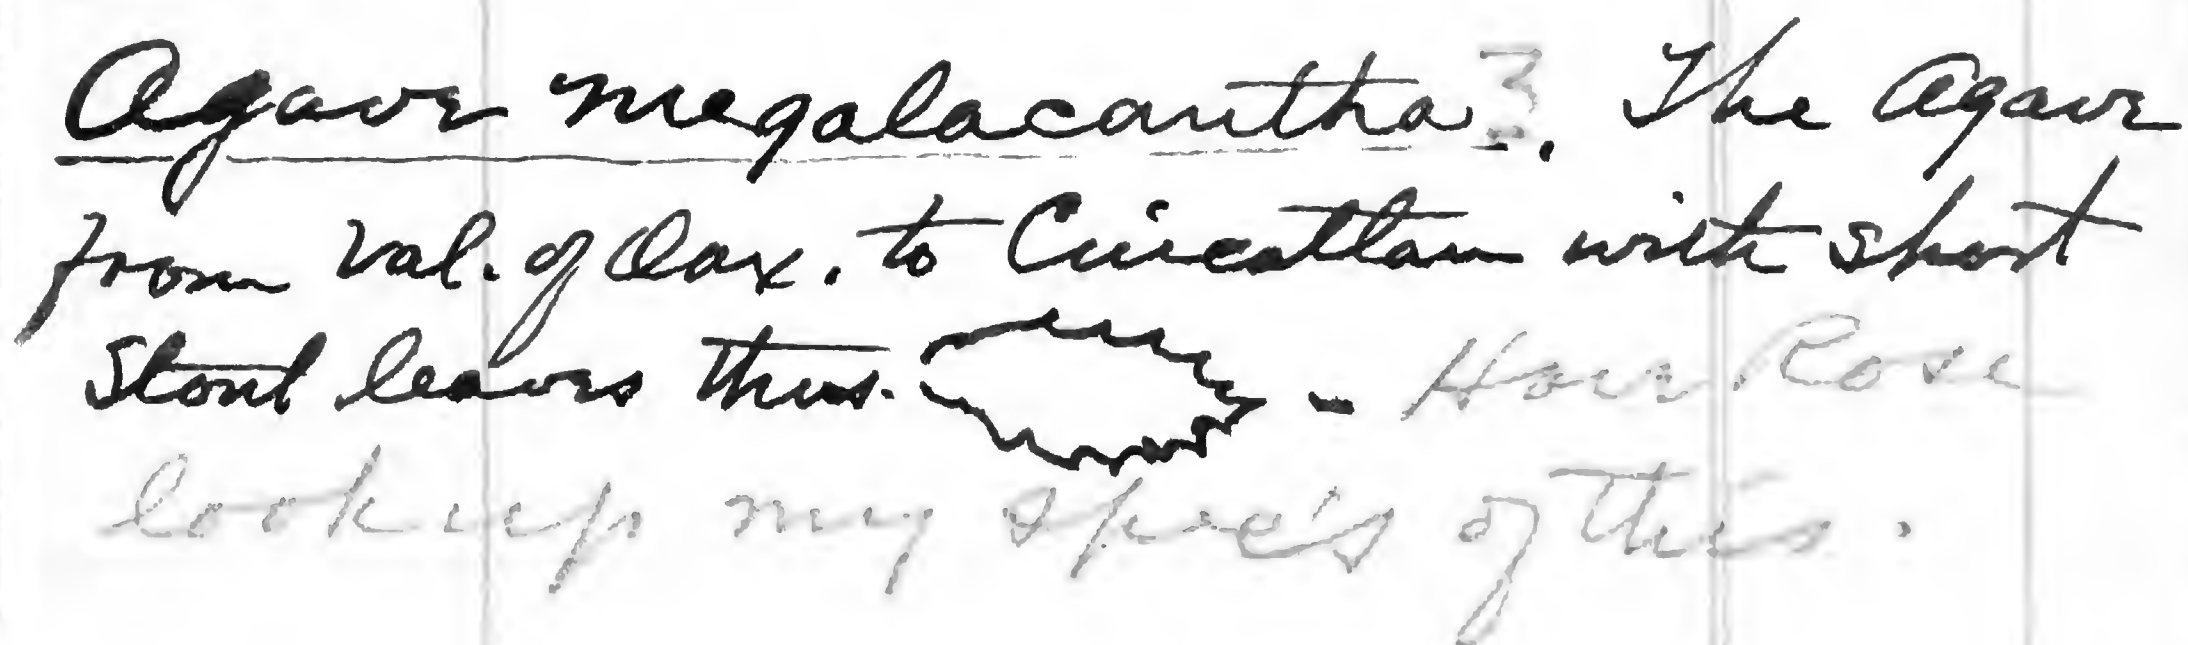 Agave megalacantha?. The Agave
from Val. of Oax. to Cuicatlan with short
stout leaves thus. - Have Rose
look up my spec's of this.